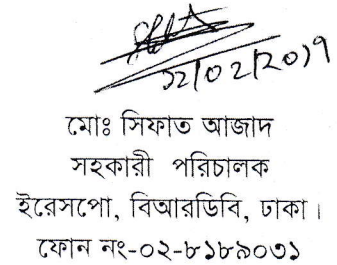 ১২/০২/২০১৭
মোঃ সিফাত আজাদ
সহকারী পরিচালক
ইরেসপো, বিআরডিবি, ঢাকা।
ফোন নং-০২-৮১৮৯০৩১